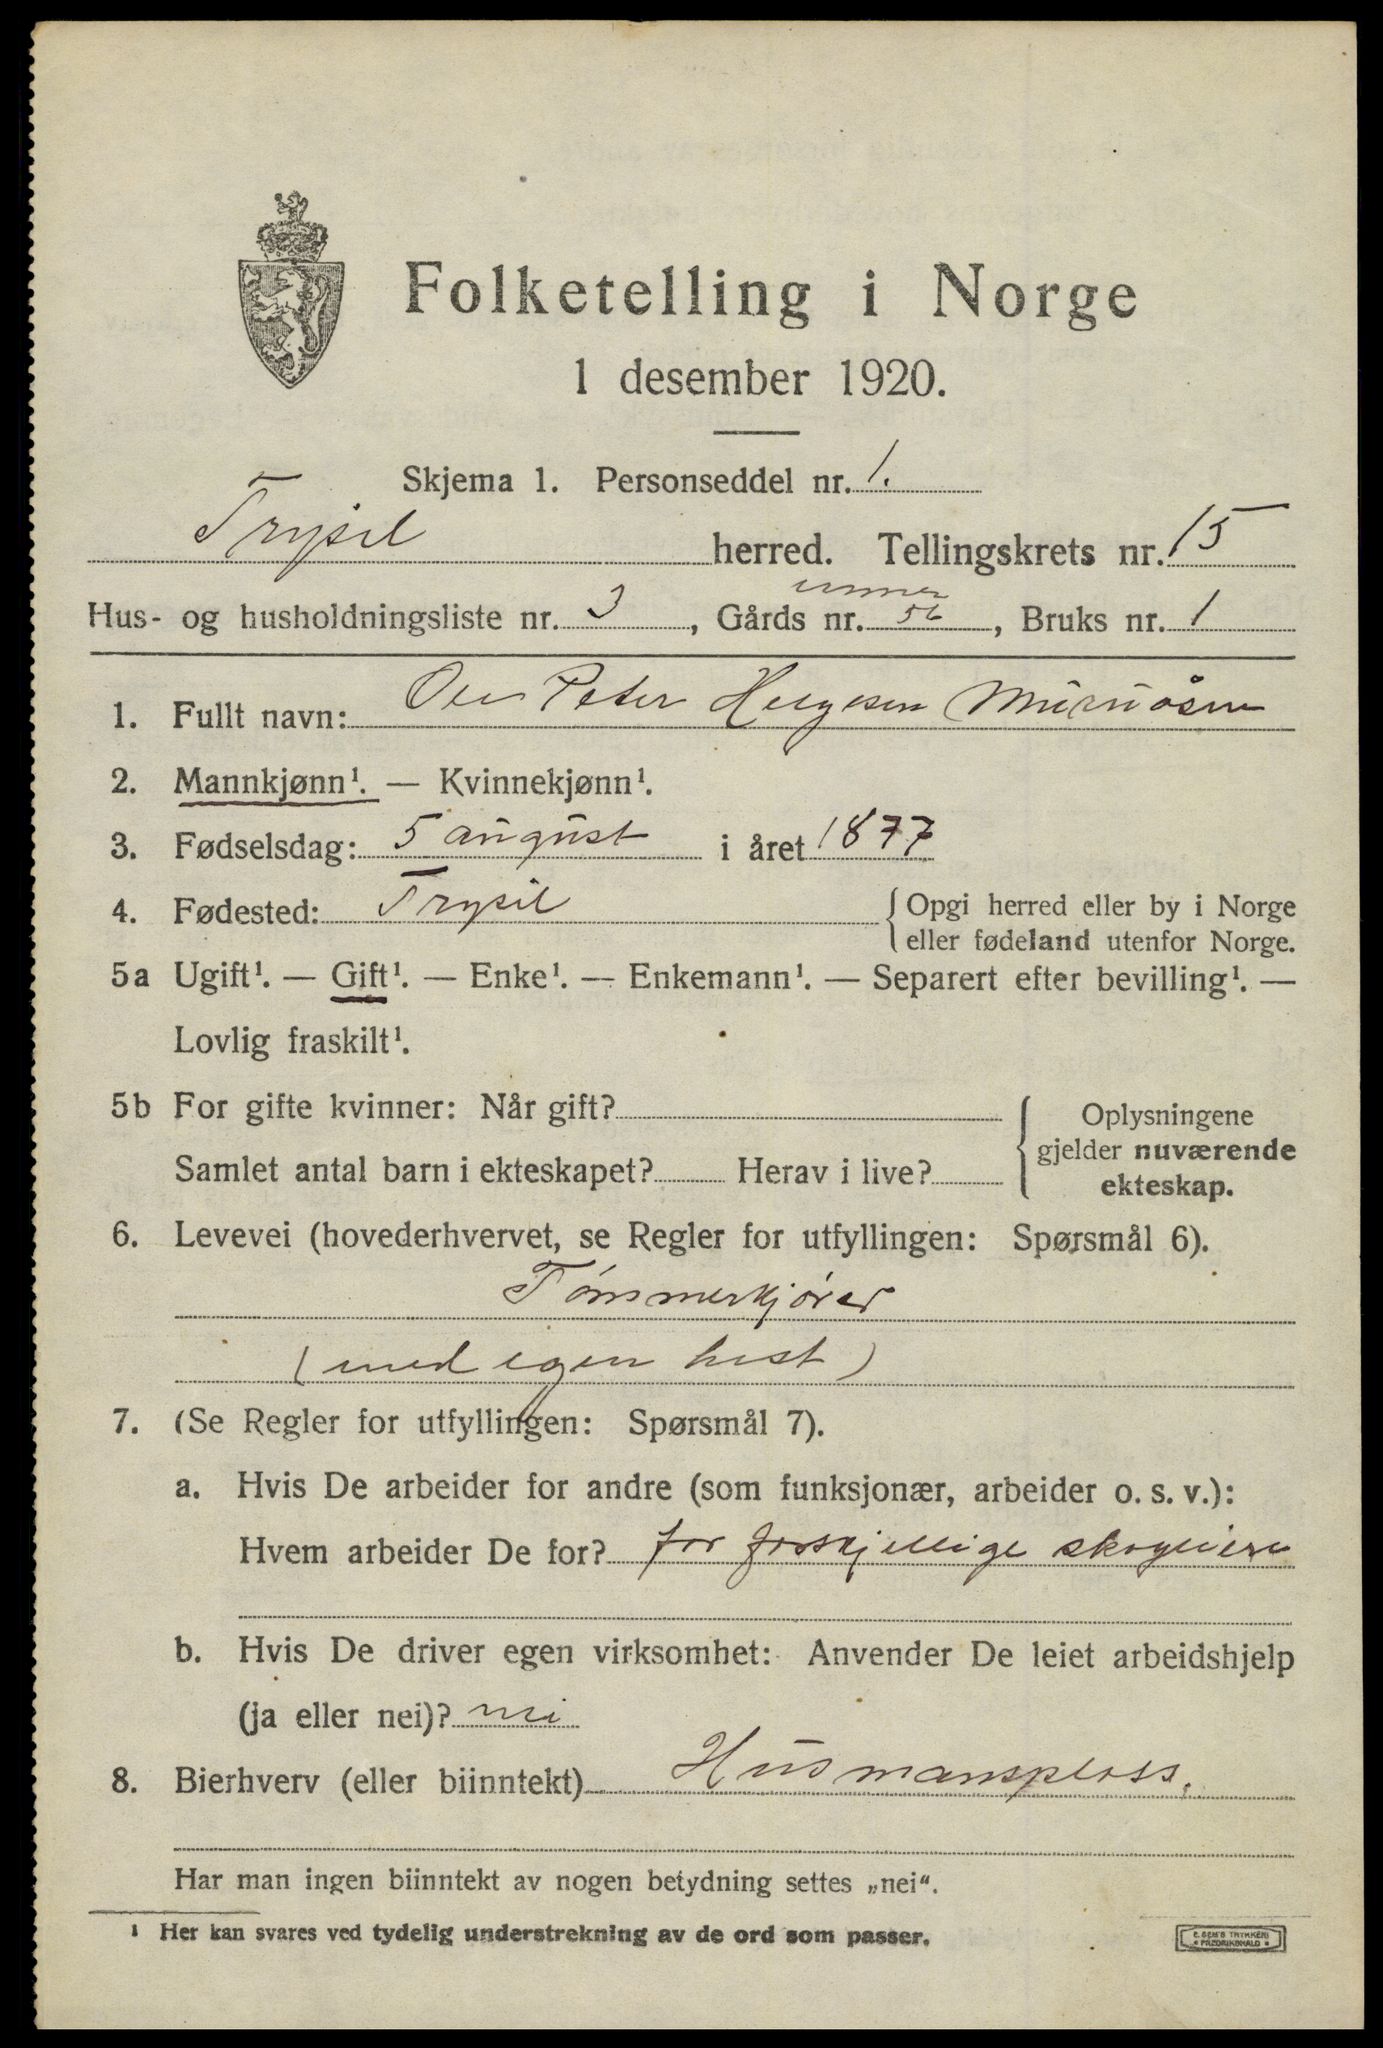 Folketelling i Norge
1 desember 1920.
Skjema 1. Personseddel nr. 1.
Trysil herred. Tellingskrets nr. 15
under
Hus- og husholdningsliste nr. 3, Gårds nr. 56, Bruks nr. 1
1. Fullt navn: Ole Peter Helgesen
2. Mannkjønn¹. — Kvinnekjønn¹.
3. Fødselsdag: 5 august i året 1877
4. Fødested: Trysil { Opgi herred eller by i Norge
eller fødeland utenfor Norge.
5a Ugift¹. — Gift¹. — Enke¹. — Enkemann¹. — Separert efter bevilling¹. —
Lovlig fraskilt¹.
5b For gifte kvinner: Når gift? { Oplysningene
gjelder nuværende
Samlet antal barn i ekteskapet? Herav i live? ekteskap.
6. Levevei (hovederhvervet, se Regler for utfyllingen: Spørsmål 6).
Tømmerkjører
(med egen hest)
7. (Se Regler for utfyllingen: Spørsmål 7).
a. Hvis De arbeider for andre (som funksjonær, arbeider o. s. v.):
Hvem arbeider De for? for forskjellige skogeiere
b. Hvis De driver egen virksomhet: Anvender De leiet arbeidshjelp
(ja eller nei)? nei
8. Bierhverv (eller biinntekt) Husmansplass.
Har man ingen biinntekt av nogen betydning settes „nei“.
¹ Her kan svares ved tydelig understrekning av de ord som passer.
E. SEM'S TRYKKERI
• FREDRIKSHALD •